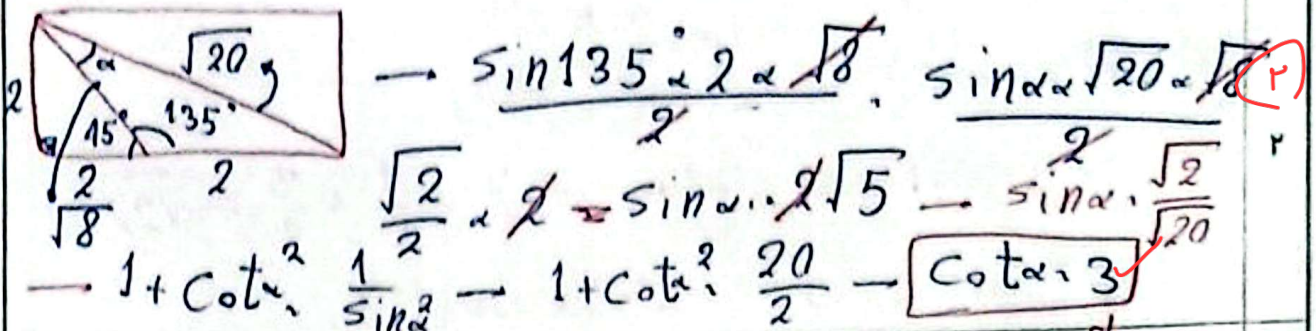 2 α √20 45° 135° → sin135° × 2 × √8 / 2 = sinα × √20 × √8 / 2 ۲
2 2 √8 √2/2 × 2 = sinα × 2√5 → sinα = √2/√20 ۲
→ 1 + cot²α = 1/sin²α → 1 + cot²α = 20/2 → cotα = 3 ✓